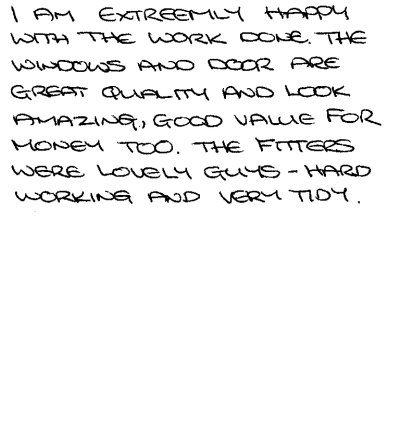 I AM EXTREEMLY HAPPY
WITH THE WORK DONE. THE
WINDOWS AND DOOR ARE
GREAT QUALITY AND LOOK
AMAZING, GOOD VALUE FOR
MONEY TOO. THE FITTERS
WERE LOVELY GUYS - HARD
WORKING AND VERY TIDY.